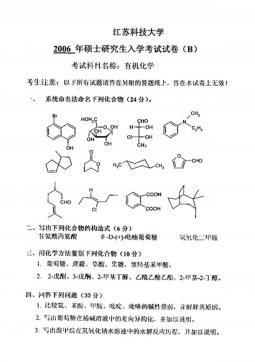 江苏科技大学
2006 年硕士研究生入学考试试卷（B）
考试科目名称：有机化学
考生注意：以下所有试题请答在另附的答题纸上，答在本试卷上无效！
一、系统命名法命名下列化合物（24 分）。
Br
OH
HOH₂C
OH
CHO
OH
CHO
CH₃
CH₃
CHO
CHO
COOH
COOH
二、写出下列化合物的构造式（6 分）
β-D-(+)-吡喃葡萄糖
氢氧化三甲铵
三、用化学方法鉴别下列化合物（10 分）
1. 葡萄糖、蔗糖、草酸、果糖、邻羟基苯甲酸。
2. 2-戊酮、3-戊酮、2-甲基丁醛、乙酰乙酸乙酯、2-甲基-2-丁醇。
四、回答下列问题（30 分）
1. 比较氨、苯胺、甲胺、吡啶、吡咯的碱性强弱，并解释其原因。
2. 写出葡萄糖在稀碱溶液中的差向异构化，并加以说明。
3. 写出溴甲烷在氢氧化钠水溶液中的水解反应历程，并加以说明。